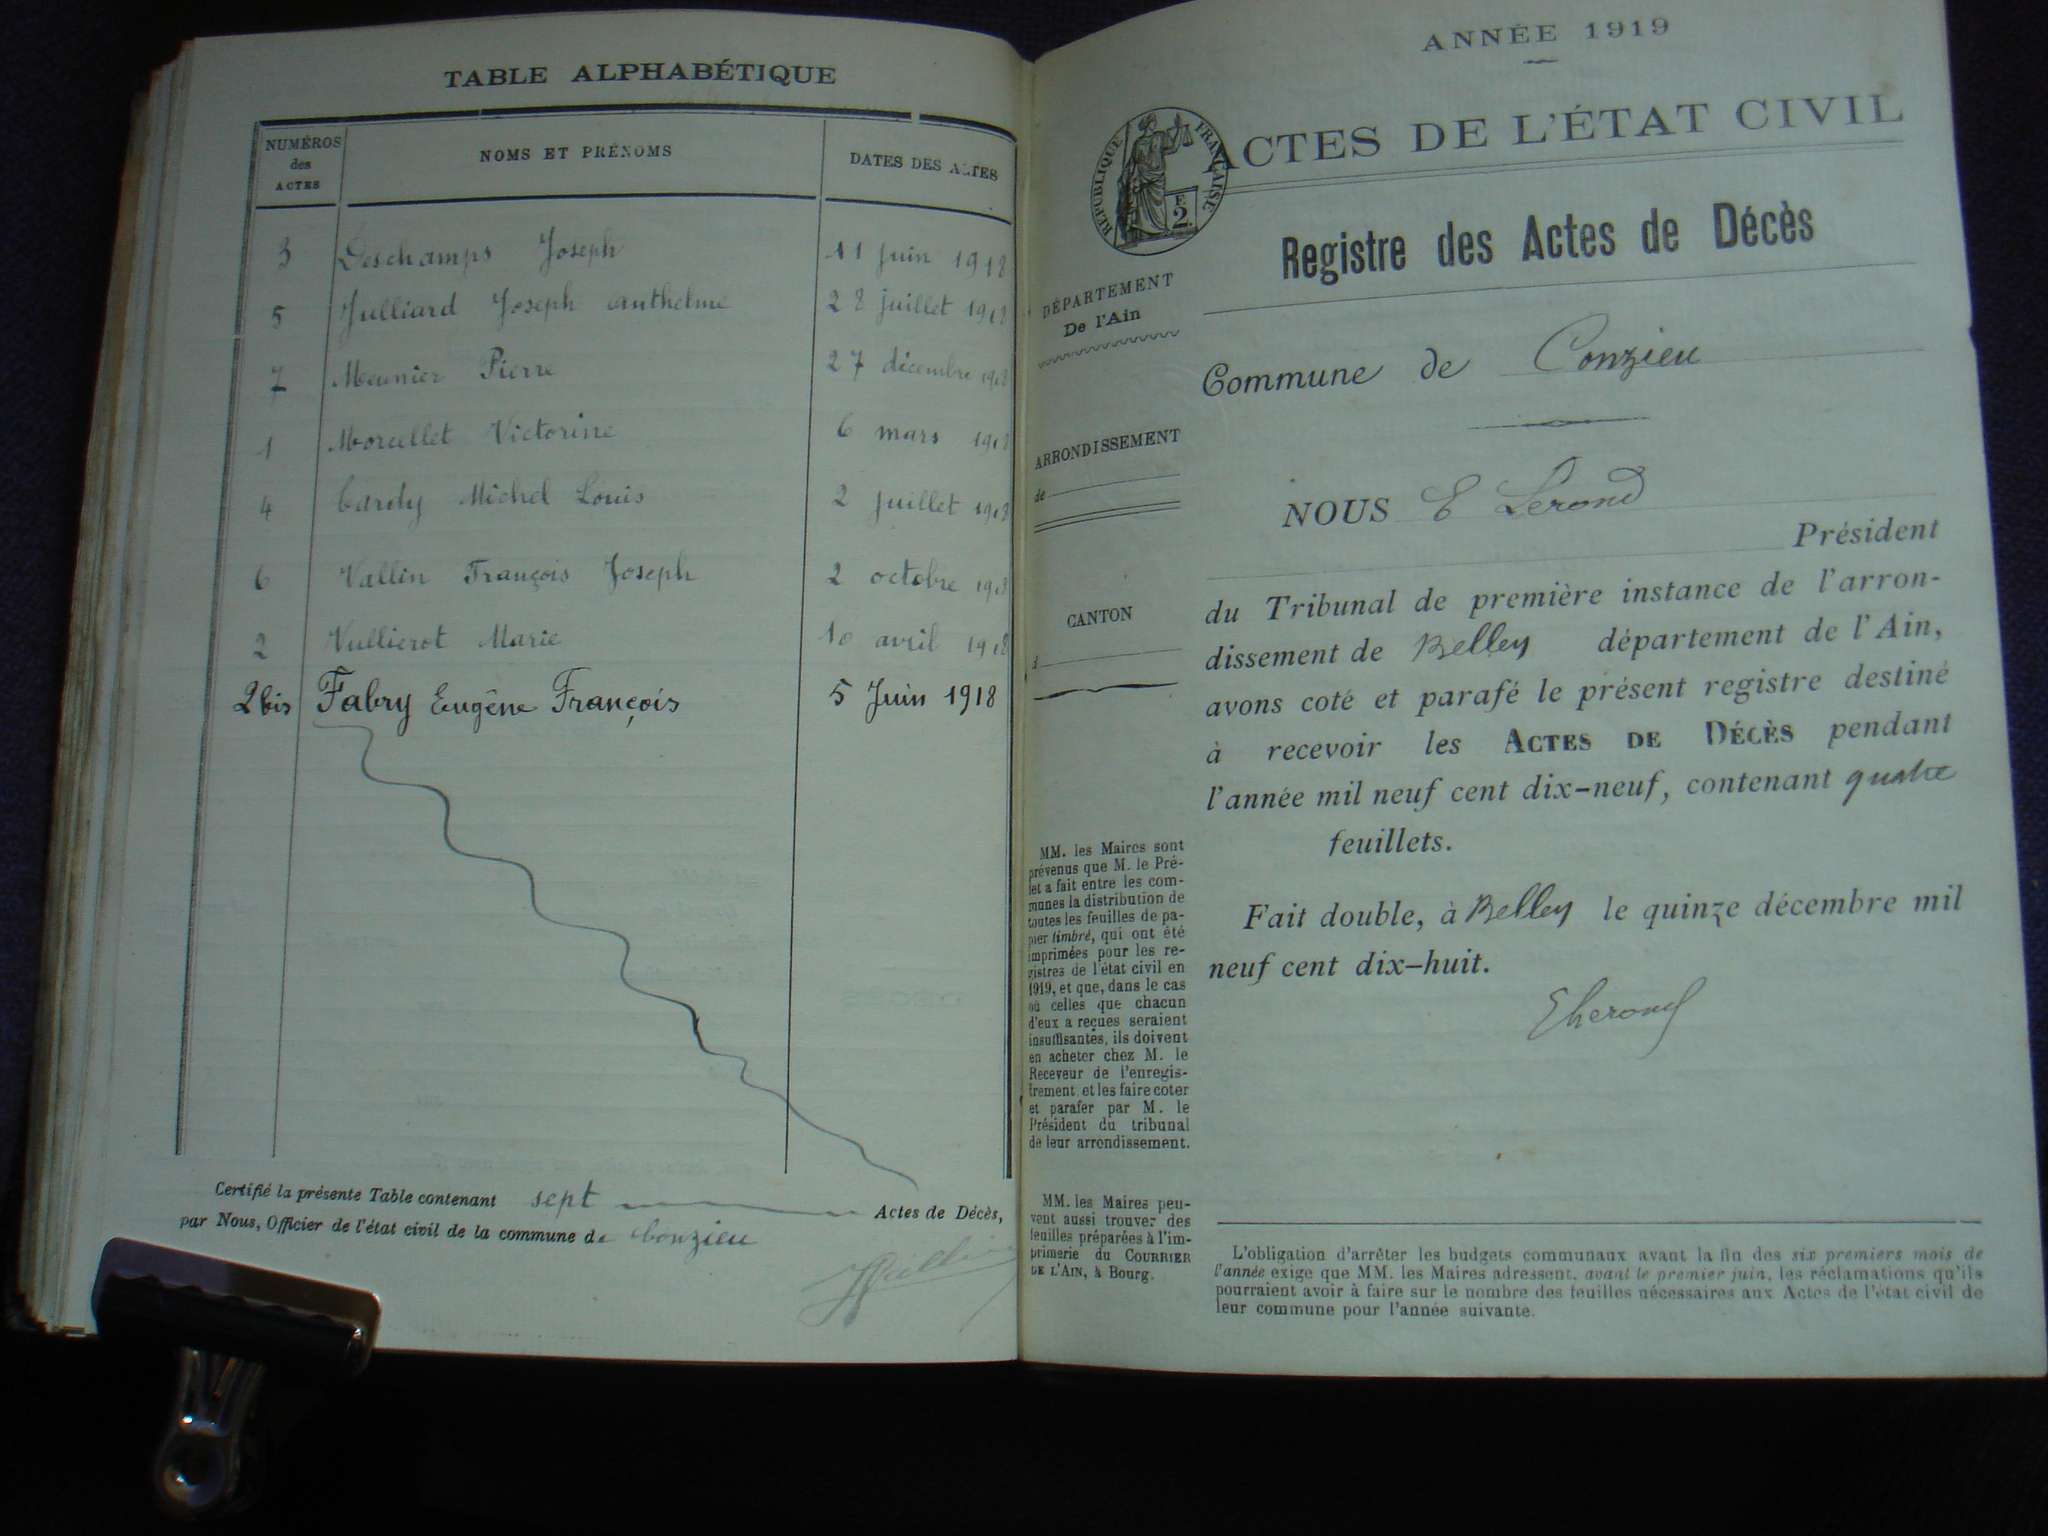 TABLE ALPHABÉTIQUE
NUMÉROS des ACTES NOMS ET PRÉNOMS DATES DES ACTES
3 Deschamps Joseph 11 juin 1918
5 Julliard Joseph Anthelme 28 juillet 1918
7 Meunier Pierre 27 décembre 1918
1 Morcellet Victorine 6 mars 1918
4 Tardy Michel Louis 2 juillet 1918
6 Vallin François Joseph 2 octobre 1918
2 Vullierot Marie 10 avril 1918
2 bis Fabry Eugène François 5 Juin 1918
Certifié la présente Table contenant sept Actes de Décès,
par Nous, Officier de l'état civil de la commune de Conzieu
ANNÉE 1919
ACTES DE L'ÉTAT CIVIL
RÉPUBLIQUE FRANÇAISE
E
2.
Registre des Actes de Décès
DÉPARTEMENT
De l'Ain
Commune de Conzieu
ARRONDISSEMENT
de
NOUS E Lerond
Président
CANTON
d
du Tribunal de première instance de l'arron-
dissement de Belley département de l'Ain,
avons coté et parafé le présent registre destiné
à recevoir les ACTES DE DÉCÈS pendant
l'année mil neuf cent dix-neuf, contenant quatre
feuillets.
Fait double, à Belley le quinze décembre mil
neuf cent dix-huit.
MM. les Maires sont
prévenus que M. le Pré-
fet a fait entre les com-
munes la distribution de
toutes les feuilles de pa-
pier timbré, qui ont été
imprimées pour les re-
gistres de l'état civil en
1919, et que, dans le cas
où celles que chacun
d'eux a reçues seraient
insuffisantes, ils doivent
en acheter chez M. le
Receveur de l'enregis-
trement et les faire coter
et parafer par M. le
Président du tribunal
de leur arrondissement.
MM. les Maires peu-
vent aussi trouver des
feuilles préparées à l'im-
primerie du COURRIER
DE L'AIN, à Bourg.
L'obligation d'arrêter les budgets communaux avant la fin des six premiers mois de
l'année exige que MM. les Maires adressent, avant le premier juin, les réclamations qu'ils
pourraient avoir à faire sur le nombre des feuilles nécessaires aux Actes de l'état civil de
leur commune pour l'année suivante.